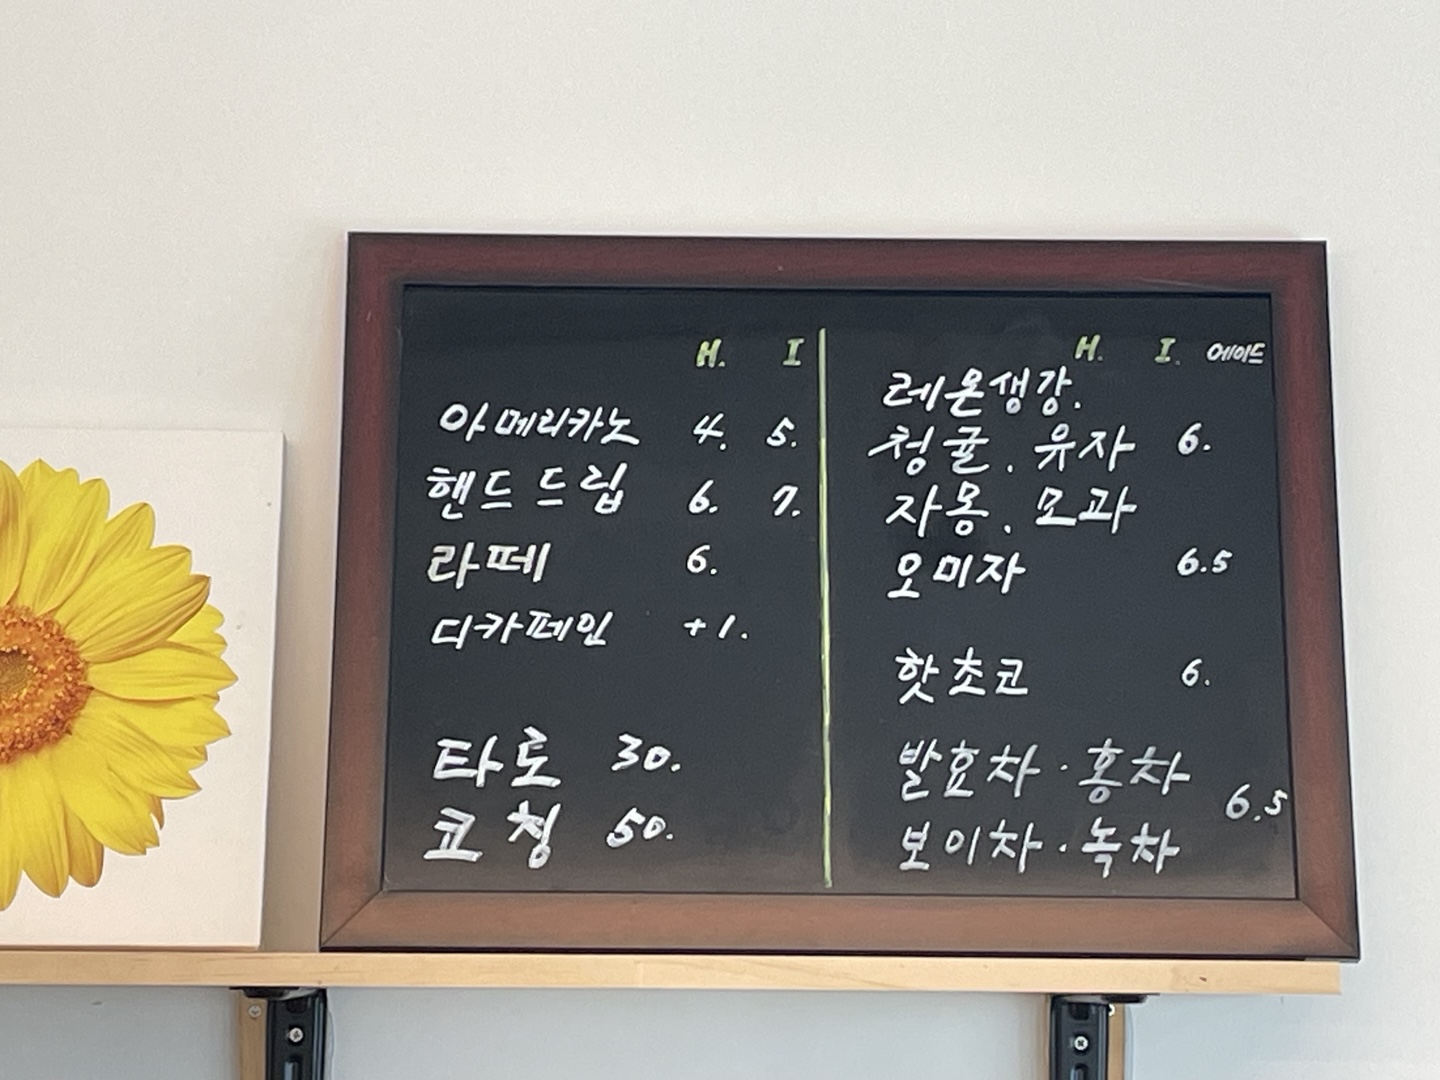 H. I
아메리카노 4. 5.
핸드드립 6. 7.
라떼 6.
디카페인 +1.
타로 30.
코칭 50.
H. I. 에이드
레몬생강.
청귤. 유자 6.
자몽. 모과
오미자 6.5
핫초코 6.
발효차·홍차
6.5
보이차·녹차